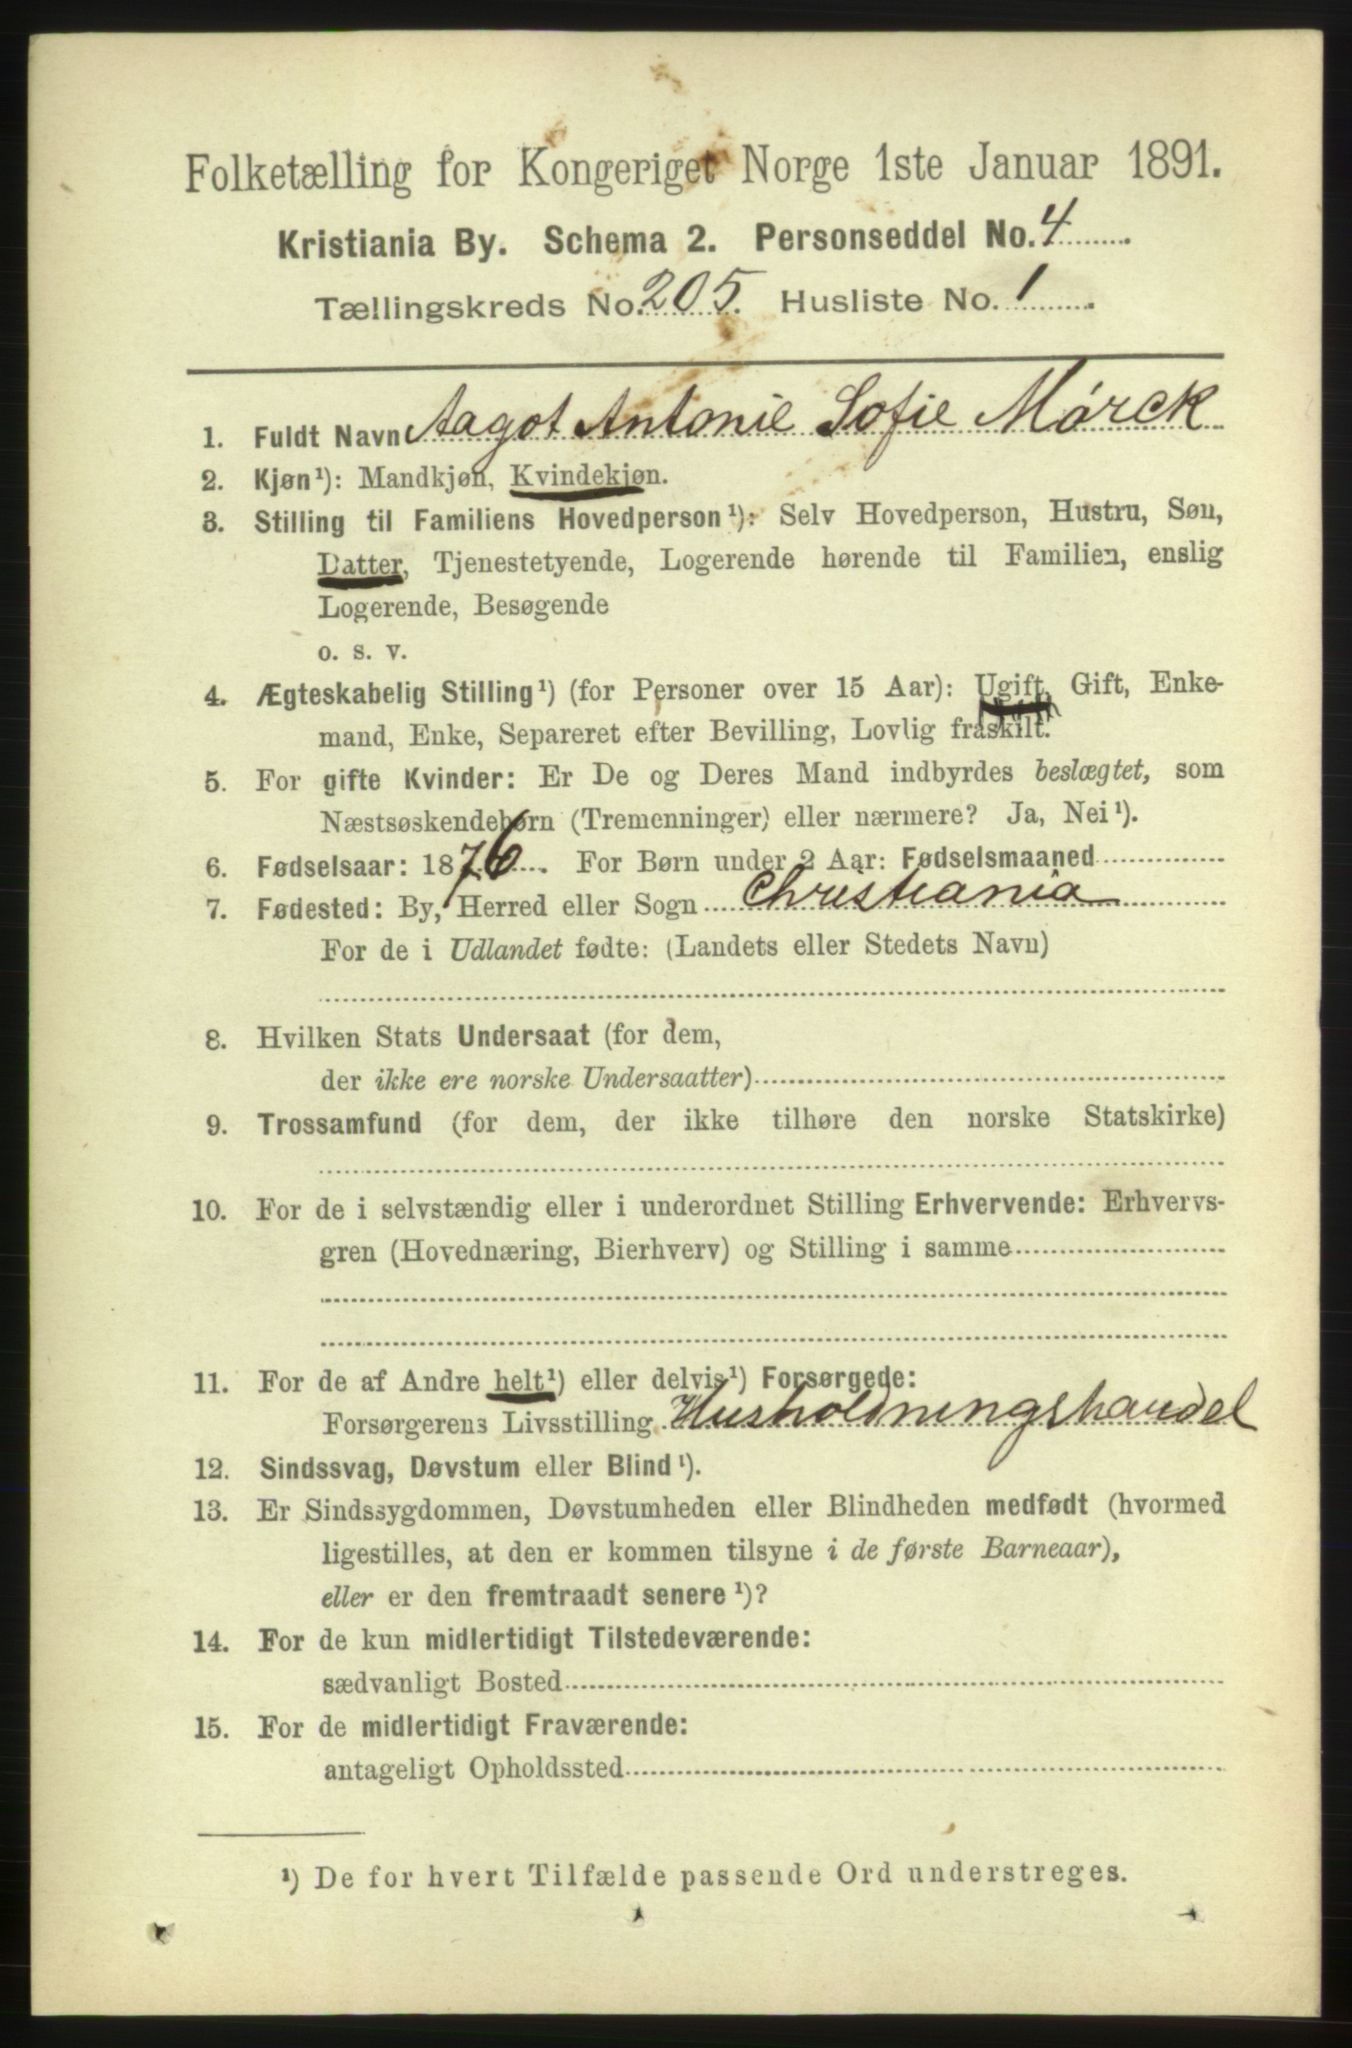 Folketælling for Kongeriget Norge 1ste Januar 1891.
Kristiania By. Schema 2. Personseddel No. 4
Tællingskreds No. 205. Husliste No. 1
1. Fuldt Navn Aagot Antonie Sofie Mørck
2. Kjøn¹): Mandkjøn, Kvindekjøn.
3. Stilling til Familiens Hovedperson¹): Selv Hovedperson, Hustru, Søn,
Datter, Tjenestetyende, Logerende hørende til Familien, enslig
Logerende, Besøgende
o. s. v.
4. Ægteskabelig Stilling¹) (for Personer over 15 Aar): Ugift, Gift, Enke-
mand, Enke, Separeret efter Bevilling, Lovlig fraskilt.
5. For gifte Kvinder: Er De og Deres Mand indbyrdes beslægtet, som
Næstsøskendebørn (Tremenninger) eller nærmere? Ja, Nei¹).
6. Fødselsaar: 1876. For Børn under 2 Aar: Fødselsmaaned
7. Fødested: By, Herred eller Sogn Christiania
For de i Udlandet fødte: (Landets eller Stedets Navn)
8. Hvilken Stats Undersaat (for dem,
der ikke ere norske Undersaatter)
9. Trossamfund (for dem, der ikke tilhøre den norske Statskirke)
10. For de i selvstændig eller i underordnet Stilling Erhvervende: Erhvervs-
gren (Hovednæring, Bierhverv) og Stilling i samme
11. For de af Andre helt¹) eller delvis¹) Forsørgede:
Forsørgerens Livsstilling Husholdningshandel
12. Sindssvag, Døvstum eller Blind¹).
13. Er Sindssygdommen, Døvstumheden eller Blindheden medfødt (hvormed
ligestilles, at den er kommen tilsyne i de første Barneaar),
eller er den fremtraadt senere¹)?
14. For de kun midlertidigt Tilstedeværende:
sædvanligt Bosted
15. For de midlertidigt Fraværende:
antageligt Opholdssted
¹) De for hvert Tilfælde passende Ord understreges.